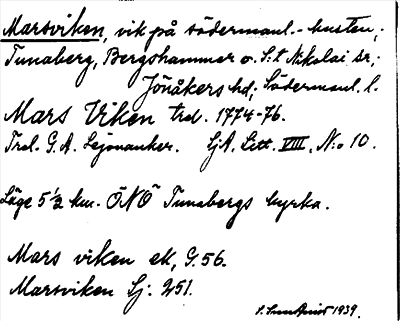 Marsviken, vik på södermanl.-kusten,;
Tunaberg, Bergshammar o. S:t Nikolai sr,;
Jönåkers hd; Södermanl. l.
Mars Viken trol. 1774-76.
Trol. G. A. Lejonanker. LjA. Litt. VIII. N:o 10.
Läge 5 1/2 km. ÖNÖ Tunabergs kyrka.
Mars viken ek, G. 56.
Marsviken Sj: 251.
1939.